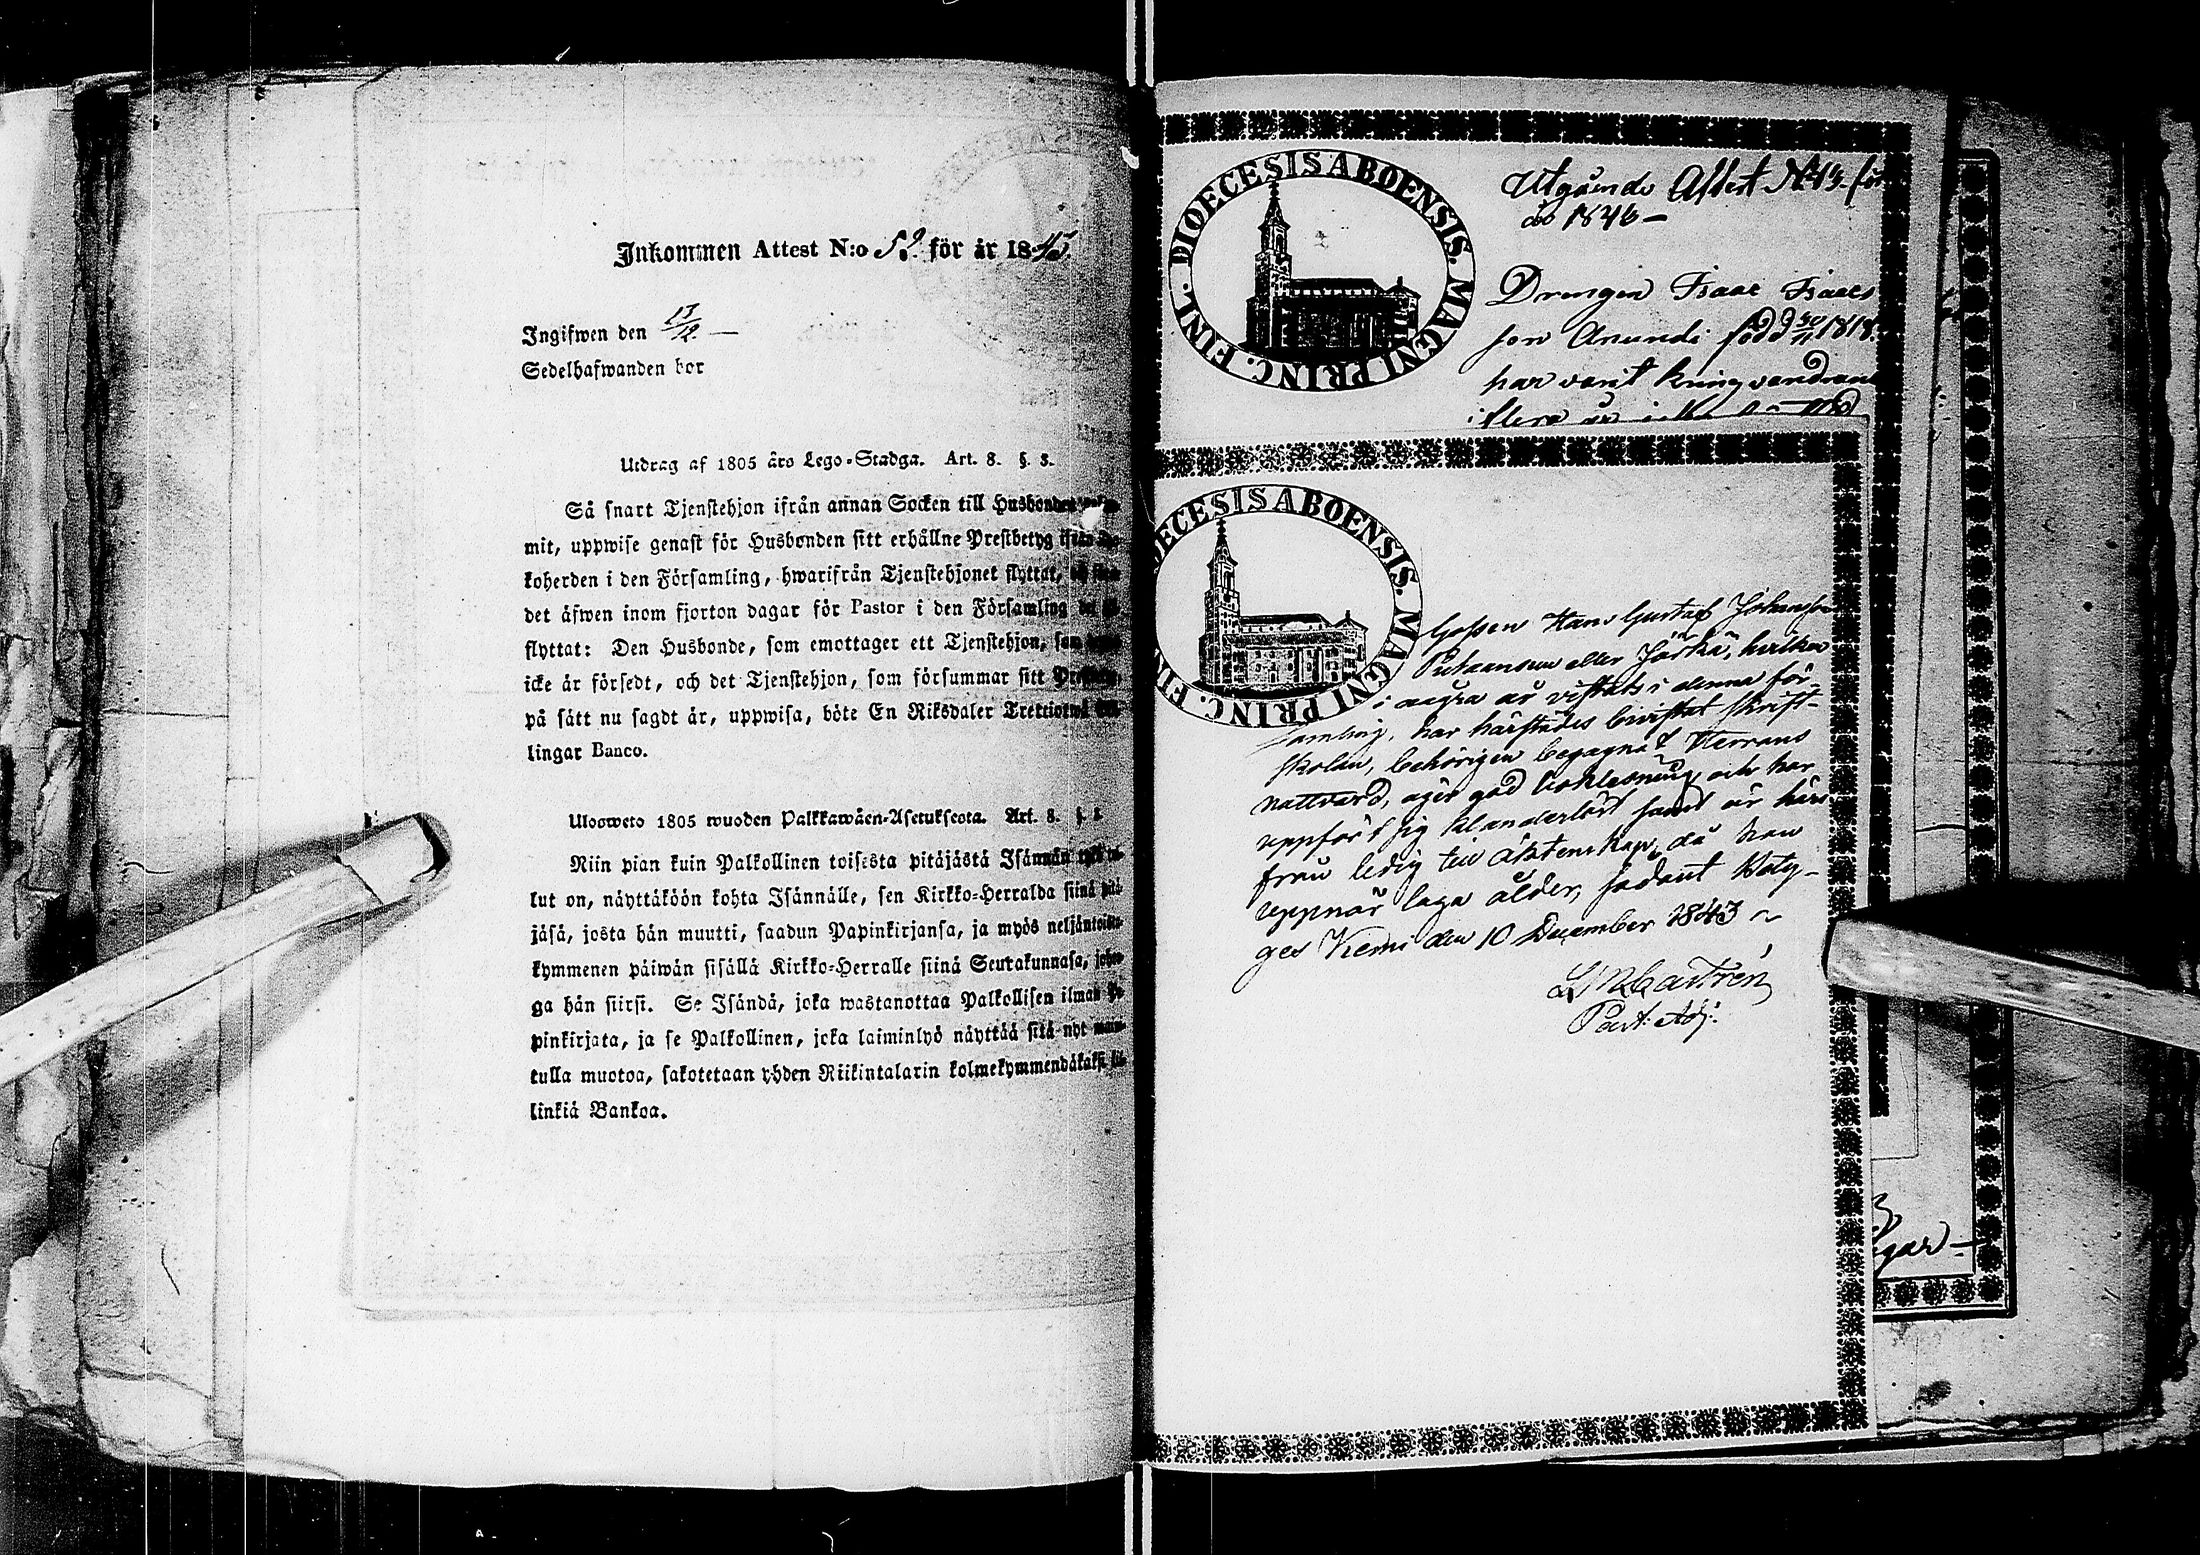 Inkommen Attest N:o 52. för år 1845.
Ingifwen den 13/12. —
Sedelhafwanden bor
Utdrag af 1805 års Lego-Stadga. Art. 8. §. 3.
Så snart Tjenstehjon ifrån annan Socken till Husbonden
mit, uppwise genast för Husbonden sitt erhållne Prestbetyg ifrån
koherden i den Församling, hwarifrån Tjenstehjonet flyttat,
det äfwen inom fjorton dagar för Pastor i den Församling
flyttat: Den Husbonde, som emottager ett Tjenstehjon, som
icke är försedt, och det Tjenstehjon, som försummar sitt
på sätt nu sagdt är, uppwisa, böte En Riksdaler Trettiotwå
lingar Banco.
Ulosweto 1805 wuoden Palkkawäen-Asetuksesta. Art. 8. §.
Niin pian kuin Palkollinen toisesta pitäjästä Isännän
lut on, näyttäköön kohta Isännälle, sen Kirkko-Herralda siinä pitä-
jäsä, josta hän muutti, saadun Papinkirjansa, ja myös neljäntoista-
kymmenen päiwän sisällä Kirkko-Herralle siinä Seurakunnasa, johon-
ga hän siirsi. Se Isändä, joka wastanottaa Palkollisen ilman Pa-
pinkirjata, ja se Palkollinen, joka laiminlyö näyttää sitä nyt
tulla muotoa, sakotetaan yhden Riikintalarin kolmekymmendäkaksi kil-
linkiä Bankoa.
DIOECESIS ABOENSIS. MAGNI PRINC. FINL.
Utgående Attest N 13. för
år 1846 —
Drengen Isaac Isaacs
son Anundi född 30/11 1818.
har varit kringvandrande
i flera år
DIOECESIS ABOENSIS. MAGNI PRINC. FIN
Gossen Hans Gustaf Johansson
eller Jörkä, hvilken
i några år vistats i denna för-
samling, har härstädes bivistat skrift-
skolan, behörigen begagnat Herrans
nattvard, äger god boklesning och har
uppfört sig klanderlöst samt är häri
från ledig till äktenskap, då han
uppnår laga ålder, sådant bety-
ges Kemi den 10 December 1843 ~
L M Castrén
Past. Adj.